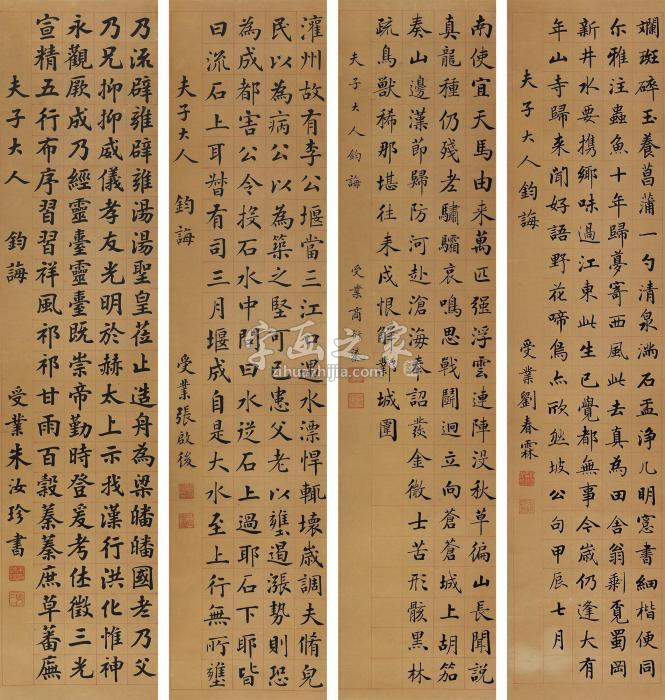 斕斑碎玉養菖蒲一勺清泉滿石盂淨几明窗書細楷便同
尒雅注蟲魚十年歸夢寄西風此去真為田舍翁剩覓蜀岡
新井水要攜鄉味過江東此生已覺都無事今歲仍逢大有
年山寺歸來聞好語野花啼鳥亦欣然坡公句甲辰七月
夫子大人鈞誨 受業劉春霖
南使宜天馬由來萬匹强浮雲連陣沒秋草徧山長聞說
真龍種仍殘老驌驦哀鳴思戰鬭迥立向蒼蒼城上胡笳
奏山邊漢節歸防河赴滄海奉詔發金微士苦形骸黑林
疏鳥獸稀那堪往來戍恨解鄴城圍
夫子大人鈞誨 受業商衍鎏
灌州故有李公堰當三江口遇水漂悍輒壞歲調夫脩
民以為病公以為築之堅可也患父老以壅遏漲勢則恐
為成都害公令投石水中問曰水從石上過耶石下耶皆
曰流石上耳有司三月堰成自是大水至上行無所壅
夫子大人 鈞誨 受業張啟後
乃流辟雍辟雍湯湯聖皇莅止造舟為梁皤皤國老乃父
乃兄抑抑威儀孝友光明於赫太上示我漢行洪化惟神
永觀厥成乃經靈臺靈臺既崇帝勤時登爰考休徵三光
宣精五行布序習習祥風祁祁甘雨百穀蓁蓁庶草蕃廡
夫子大人 鈞誨 受業朱汝珍書
字画之家
zihuazhijia.com